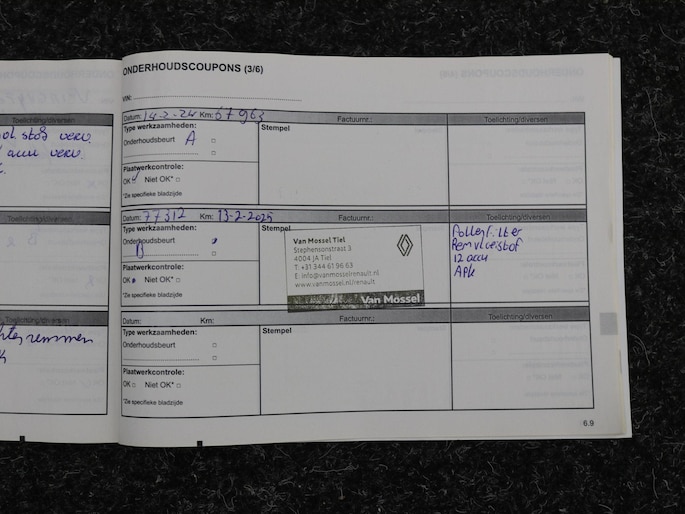 Toelichting/diversen
Toelichting/diversen
Toelichting/diversen
ONDERHOUDSCOUPONS (3/6)
VIN:
Datum: 14-2-24 Km: 67963
Factuurnr.:
Toelichting/diversen
Type werkzaamheden:
Stempel
Onderhoudsbeurt A
Plaatwerkcontrole:
OK Niet OK*
*Zie specifieke bladzijde
Datum: 77312 Km: 13-2-2025
Factuurnr.:
Toelichting/diversen
Type werkzaamheden:
Stempel
Onderhoudsbeurt
B
Plaatwerkcontrole:
OK Niet OK*
*Zie specifieke bladzijde
Van Mossel Tiel
Stephensonstraat 3
4004 JA Tiel
T: +31 344 61 96 63
E: info@vanmosselrenault.nl
www.vanmossel.nl/renault
Van Mossel
Pollenfilter
Remvloeistof
12 accu
Apk
Datum: Km:
Factuurnr.:
Toelichting/diversen
Type werkzaamheden:
Stempel
Onderhoudsbeurt
Plaatwerkcontrole:
OK Niet OK*
*Zie specifieke bladzijde
6.9